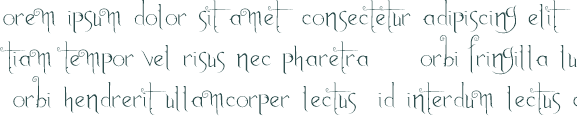 orem ipsum dolor sit amet consectetur adipiscing elit
tiam tempor vel risus nec pharetra orbi fringilla lu
orbi hendrerit ullamcorper lectus id interdum lectus